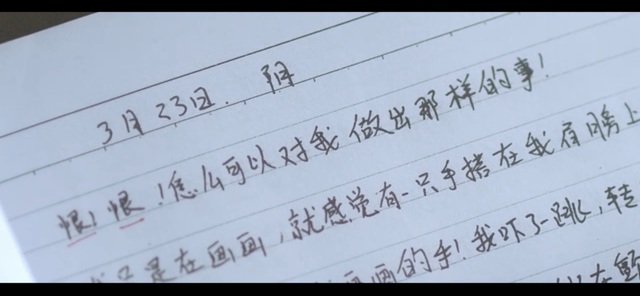 3月23日. 阴
恨! 恨!怎么可以对我做出那样的事!
只是在画画,就感觉有一只手搭在我肩膀上
画的手!我吓了一跳,转
在